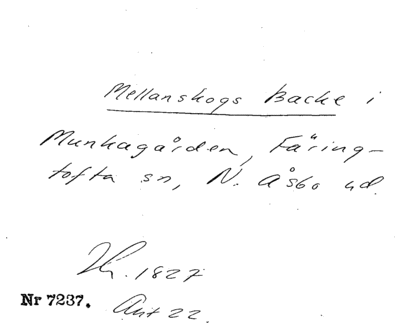 Mellanskogs Backe i
Munkagården, Färing-
tofta sn, N. Åsbo hd.
1827
Nr 7237. Ant 22.